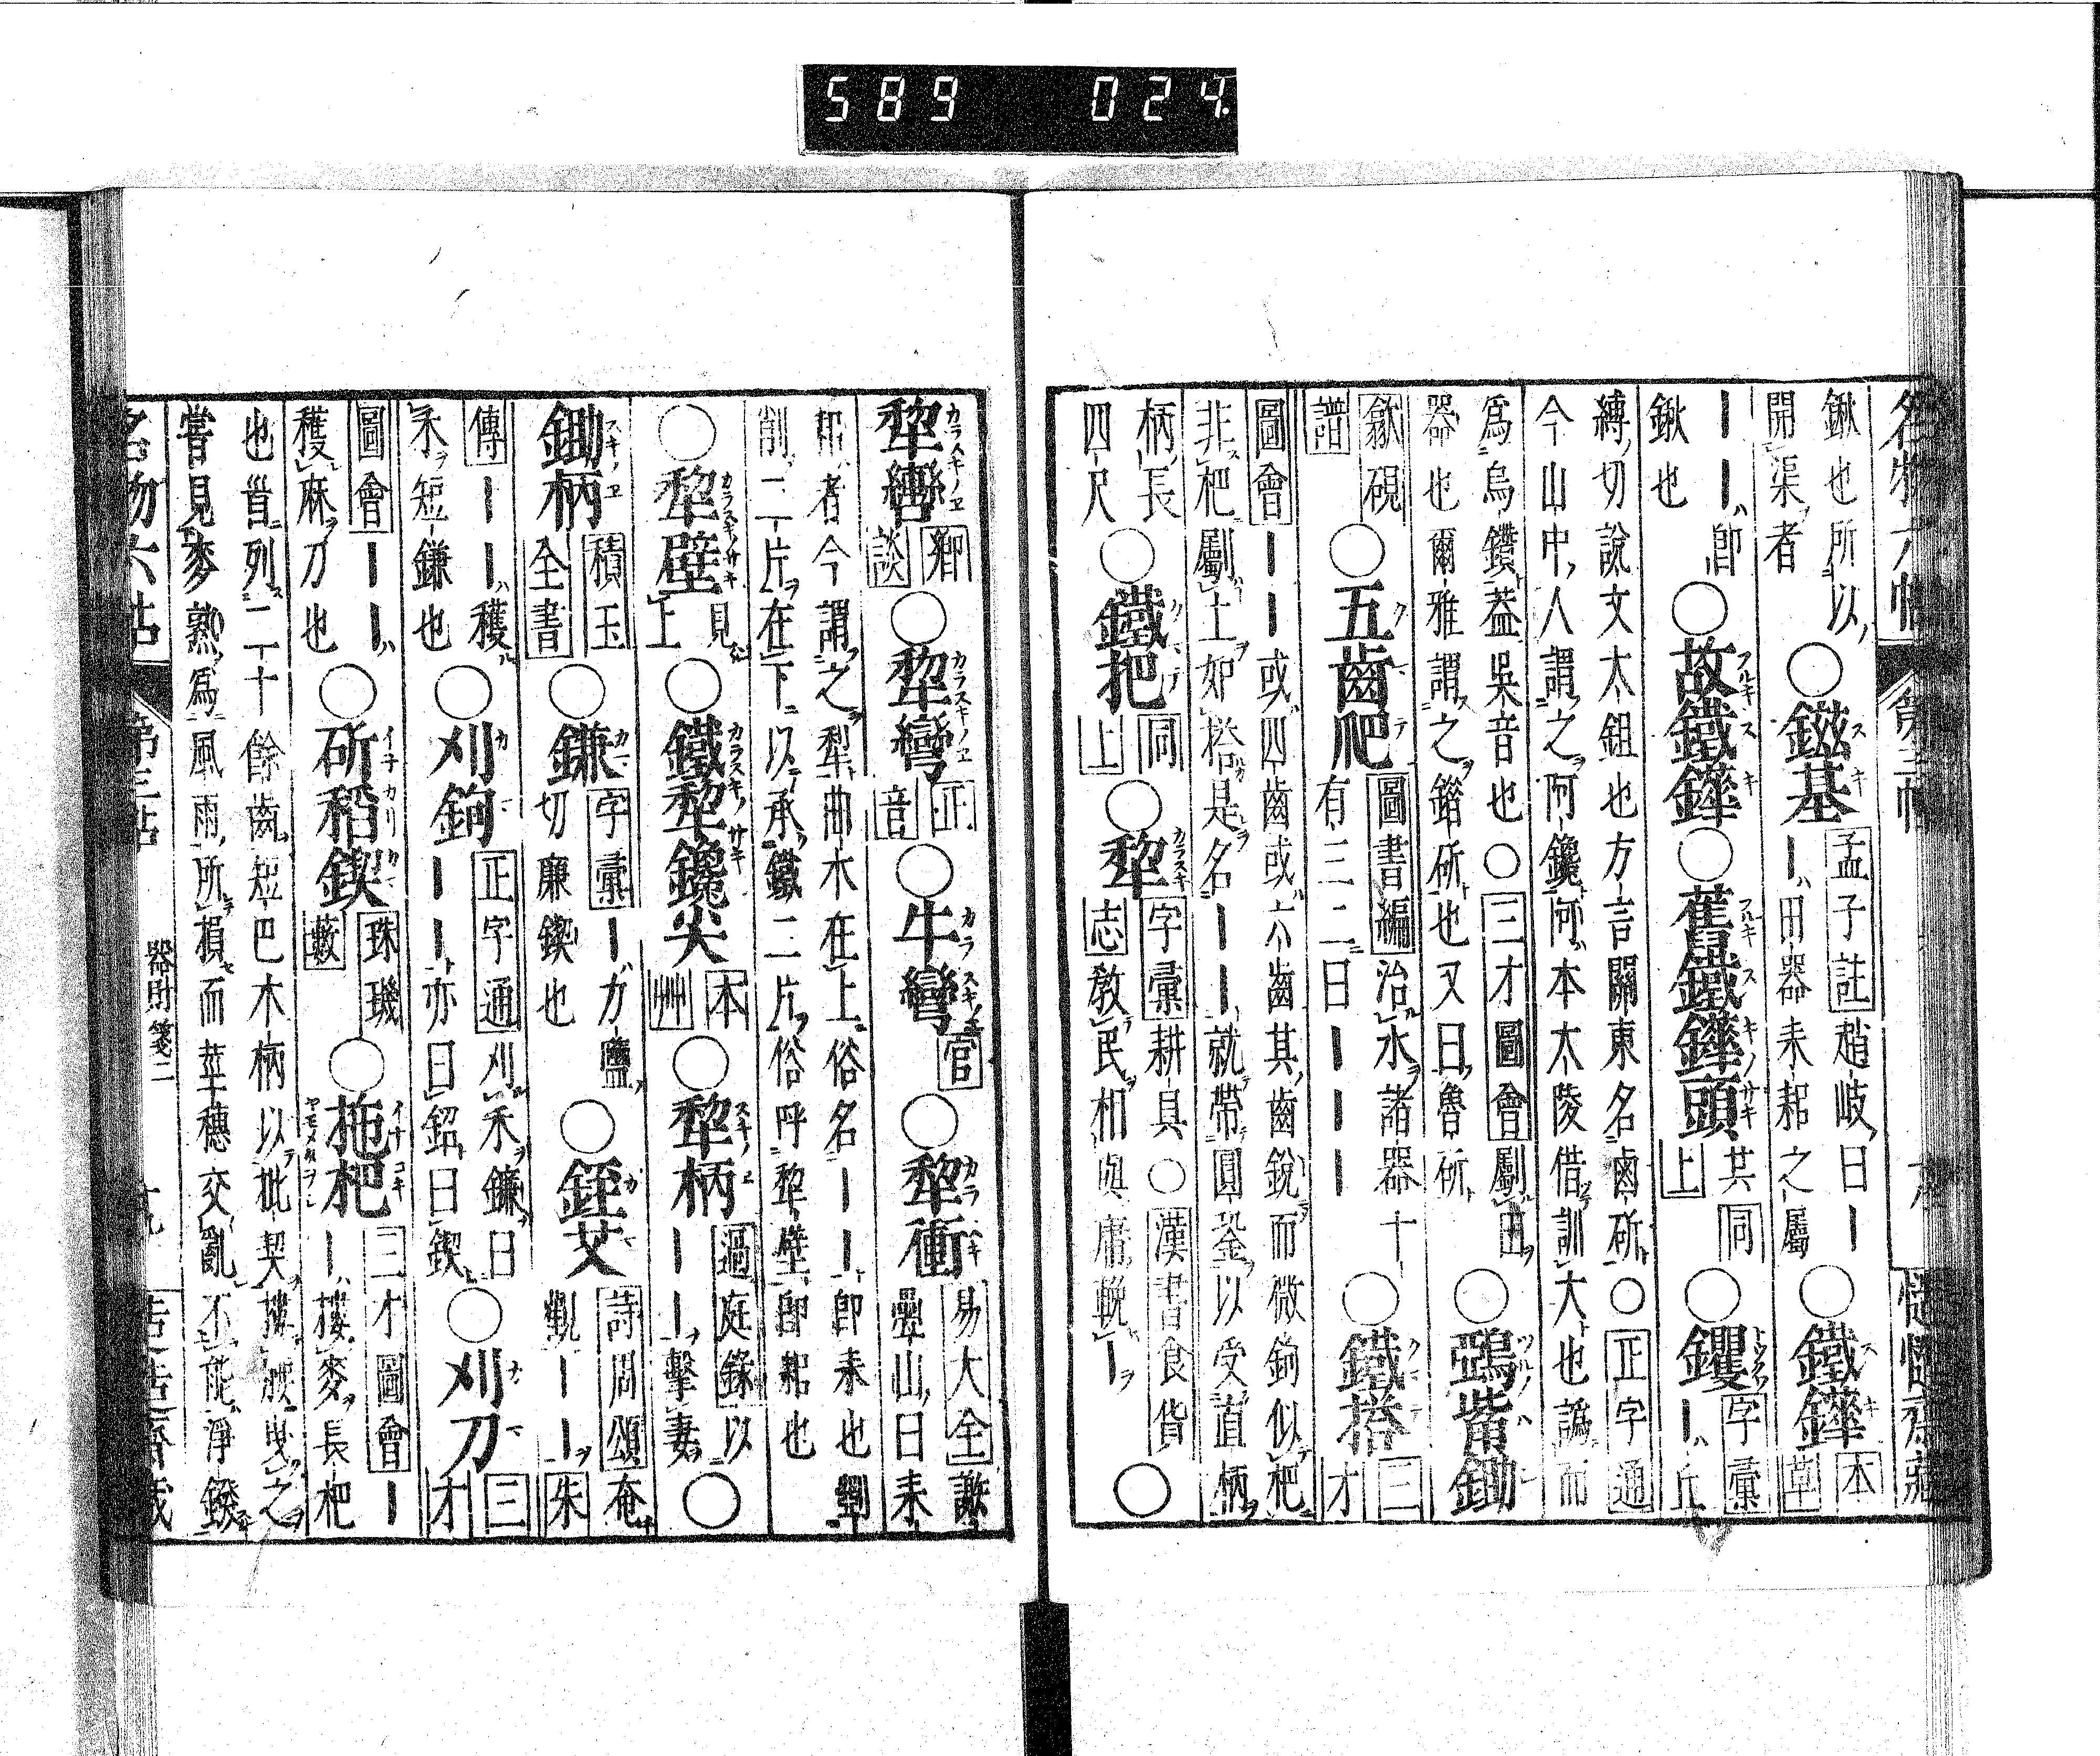 589 024
名物六帖 第三帖 慥慥齋藏
鍬也所以
開渠者
○鎡基
孟子註趙岐曰ー
ー田器耒耜之屬
○鐵鏵
本
草
ーー卽
鍬也
○故鐵鏵○舊鐵鏵頭
共同
上
○钁
字彙
ー丘
縛切說文大鉏也方言關東名鹵斫○正字通
今山中人謂之阿鑱阿本大陵借訓大也譌而
爲烏鑽葢吳音也○三才圖會劚田
器也爾雅謂之鐯斫也又曰魯斫
○鵶觜鋤
歙硯
譜
○五齒爬
圖書編治水諸器十
有三二曰ーーー
○鐵搭
三
才
圖會ーー或四齒或六齒其齒銳而微鉤似杷
非杷劚土如搭是名ーー就帶圓銎以受直柄
柄長
四尺
○鐵把
同
上
○犂
字彙耕具○漢書食貨
志敎民相與庸輓ー
○
犂轡
鄉
談
○犂彎
正
音
○牛彎
官
○犂衝
易大全謝
疊山曰耒
耜者今謂之犁曲木在上俗名ーー卽耒也劉
削二片在下以承鐵二片俗呼犂壁卽耜也
○犂壁
見
上
○鐵犂鑱尖
本
草
○犂柄
過庭錄以
ーー擊妻
○
鋤柄
積玉
全書
○鎌
字彙ー力鹽
切廉鍥也
○銍艾
詩周頌奄
觀ーー朱
傳ーー穫
禾短鎌也
○刈鉤
正字通刈禾鎌曰
ーー亦曰鉊曰鍥
○刈刀
三
才
圖會ーー
穫麻刀也
○斫稻鍥
珠璣
藪
○拖杷
三才圖會ー
ー摟麥長杷
也首列二十餘齒短巴木柄以批契摟曳之
嘗見麥熟爲風雨所損而莖穗交亂不能淨鏺
名物六帖 第三帖 器財箋二 十九